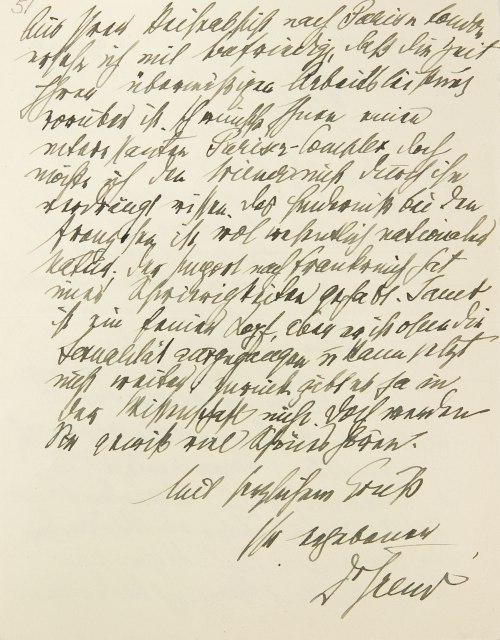 5)
Aus Ihrer Reiseabsicht nach Paris u London
ersehe ich mit Befriedig, daß die Zeit
Ihrer übermäßigen Arbeitsleistung
vorüber ist. Ich wünsche Ihnen einen
interessanten Pariser-Complex, doch
möchte ich den Wiener nicht durch ihn
verdrängt wissen. Das Hindernis bei den
Franzosen ist wol wesentlich nationaler
Natur. Der Import nach Frankreich hat
immer Schwierigkeiten gehabt. Janet
ist ein feiner Kopf, aber er ist ohne die
Sexualität ausgegangen u kann jetzt
nicht weiter, zurück gibt es ja in
der Wissenschaft nicht. Doch werden
Sie gewiß viel Schönes hören.
Mit herzlichem Gruß
Ihr ergebener
Dr Freud